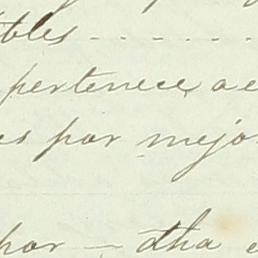 ibles - - - - - - -
pertenece, ae
es por mejo
por — dha e